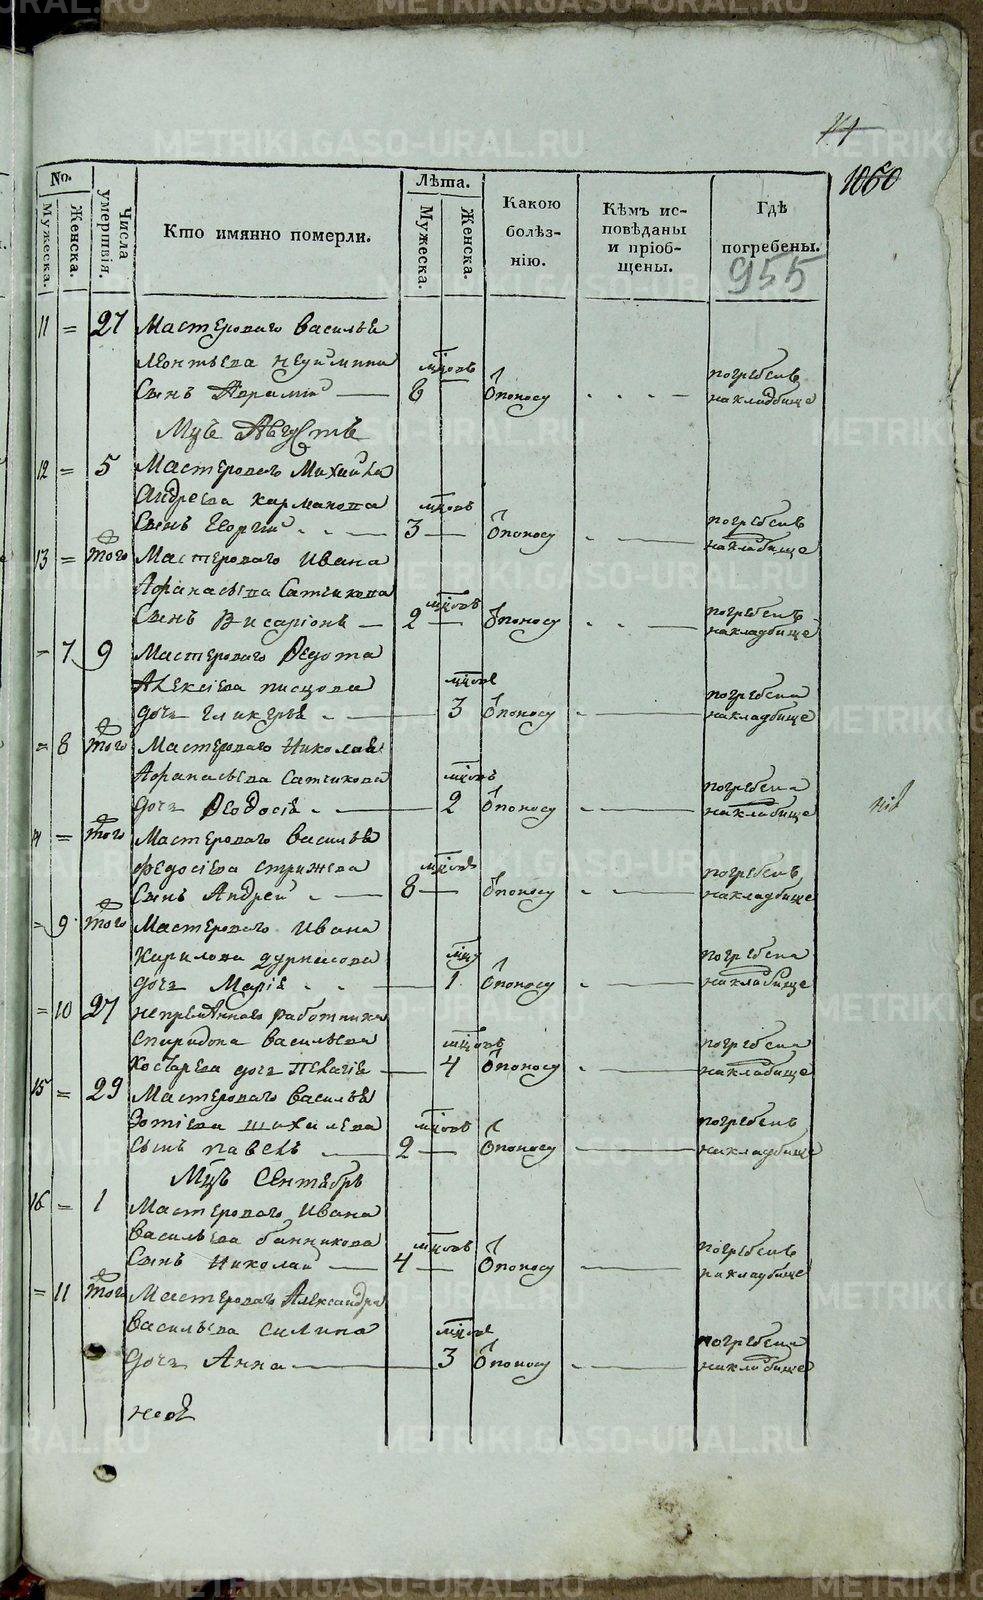 14
1060
No.
Мужеска.
Женска.
Числа умершвія.
Кто имянно померли.
Лѣта.
Мужеска.
Женска.
Какою болѣз-
нію.
Кѣмъ ис-
повѣданы
и пріоб-
щены.
Гдѣ
погребены.
955
11 = 27 Мастероваго Василья
Леонтьева
сынъ Аврамій 8 мцовъ поносу погребенъ на кладбище
Мцъ Августъ
12 = 5 Мастероваго Михайла
Андреева Карманова
сынъ Георгій 3 мцовъ поносу погребенъ на кладбище
13 = того Мастероваго Ивана
Афанасьева Сатчикова
сынъ Висаріонъ 2 мцовъ поносу погребенъ на кладбище
= 7 9 Мастероваго Ѳедота
Алексіева Писцова
дочь Гликерья 3 мцовъ поносу погребена на кладбище
= 8 того Мастероваго Николая
Афанасьева Сатчикова
дочь Ѳеодосія 2 мцовъ поносу погребена на кладбище
14 = того Мастероваго Василья
Федосіева Стрижева
сынъ Андрей 8 мцовъ поносу погребенъ на кладбище
= 9 того Мастероваго Ивана
Кирилова
дочь Марія 1 мцъ поносу погребена на кладбище
= 10 27 непремѣннаго работника
Спиридона Васильева
Костарева дочь Пелагія 4 мцовъ поносу погребена на кладбище
15 = 29 Мастероваго Василья
Зотіева Шихалева
сынъ Павелъ 2 мцовъ поносу погребенъ на кладбище
Мцъ Сентябрь
16 = 1 Мастероваго Ивана
Васильева Банникова
сынъ Николай 4 мцовъ поносу погребенъ на кладбище
= 11 того Мастероваго Александра
Васильева Силина
дочь Анна 3 мцовъ поносу погребена на кладбище
METRIKI.GASO-URAL.RU